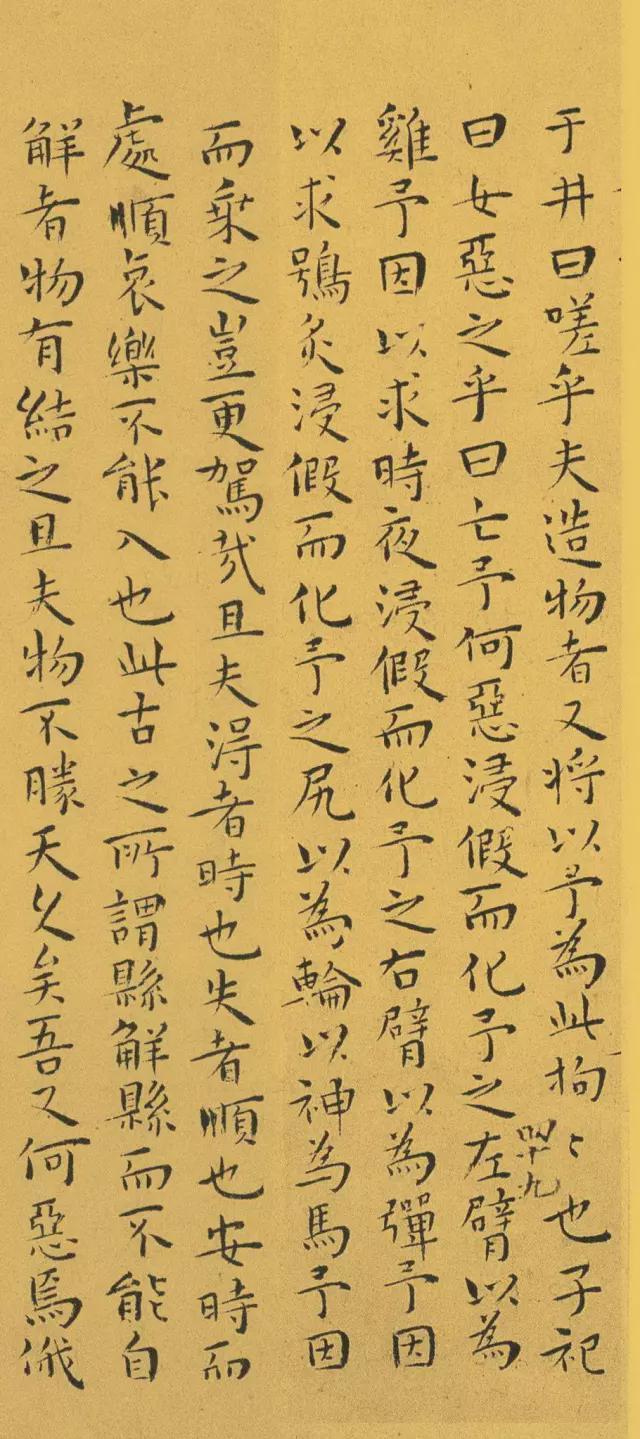 于井曰嗟乎夫造物者又将以予為此拘〻也子祀
曰女惡之乎曰亡予何惡浸假而化予之左臂以為
雞予因以求時夜浸假而化予之右臂以為彈予因
以求鴞炙浸假而化予之尻以為輪以神為馬予因
而乗之豈更駕哉且夫淂者時也失者順也安時而
處順哀樂不能入也此古之所謂縣觧縣而不能自
觧者物有結之且夫物不勝天久矣吾又何惡焉俄
四十九